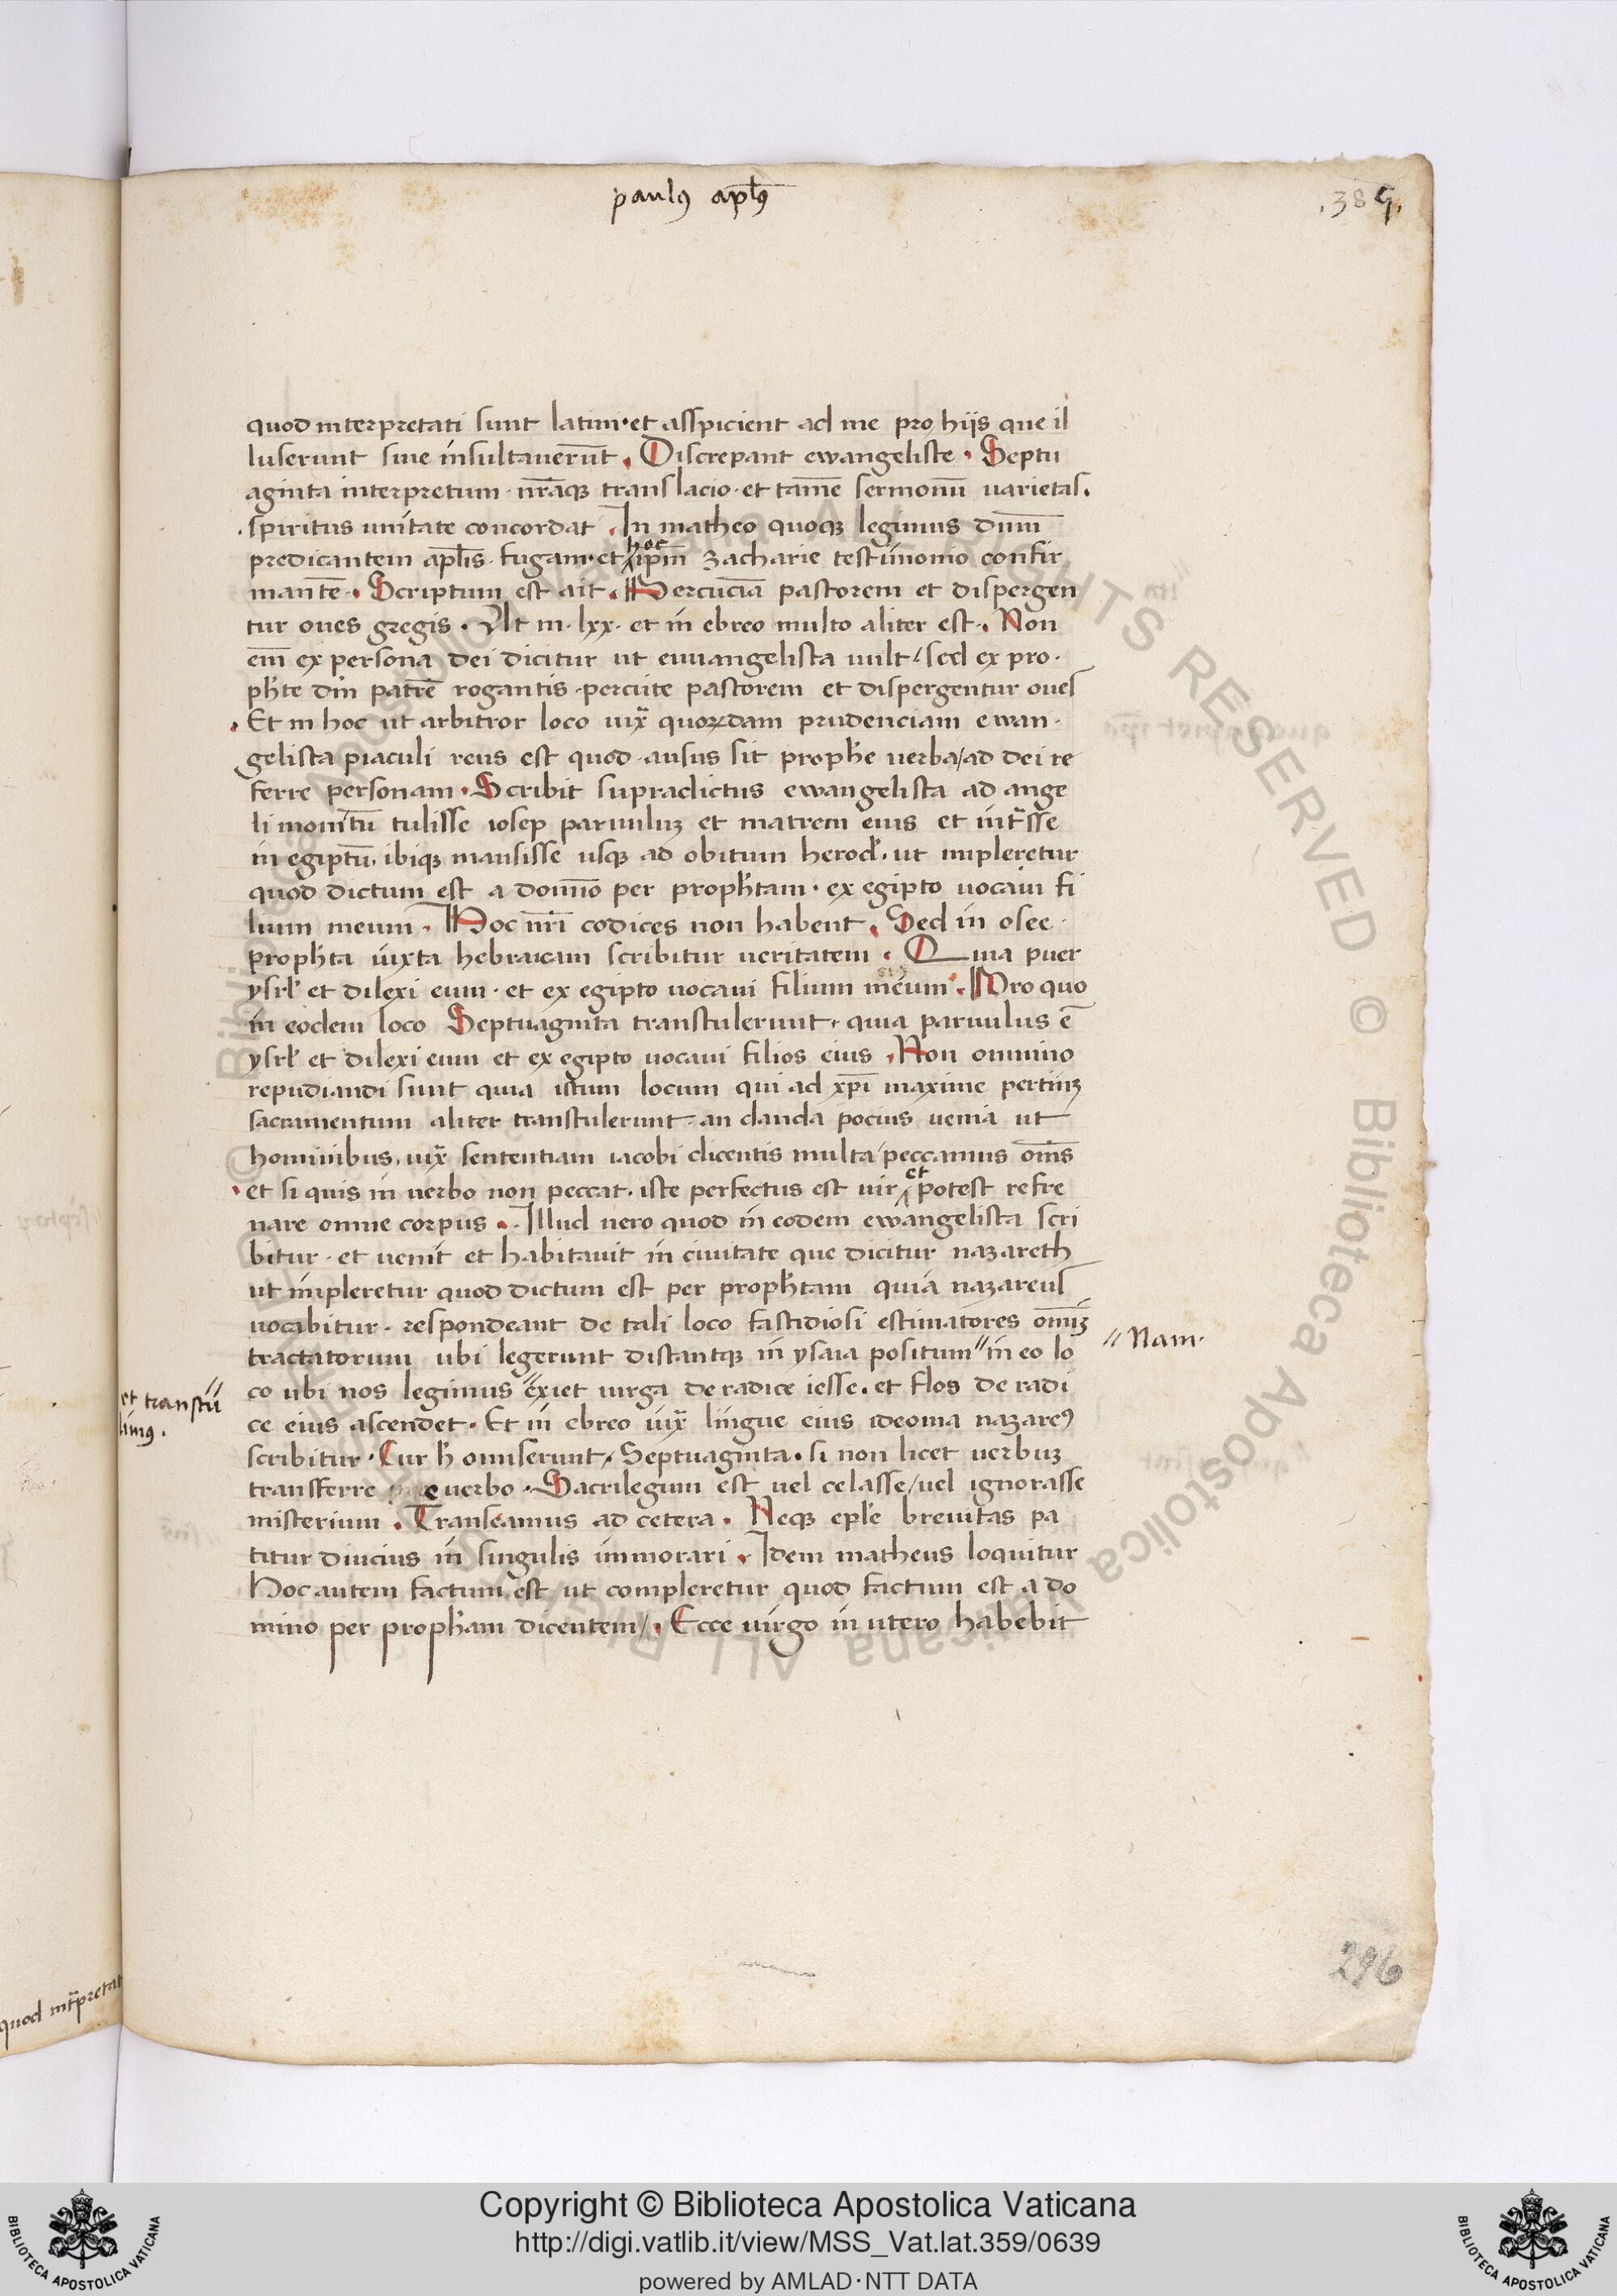 paulꝰ apl̅ꝰ
.389.
quod interpretati sunt latini·et asspicient ad me pro hijs que il
luserunt siue insultauerūt. Discrepant ewangeliste· Septu
aginta interpretum· nr̅aqꝫ translacio·et tamē sermonū varietas.
.spiritus unitate concordat. In matheo quoqꝫ legimus dnm̅
predicantem apl̅is· fugam·et hoc ip̅m zacharie testimonio confir
mantē· Scriptum est ait. Percuciā pastorem et dispergen
tur oues gregis· At in·lxx· et in ebreo multo aliter est. Non
em̅ ex persona dei dicitur ut euuangelista uult/sed ex pro·
ph̅te dn̅i patrē rogantis·percute pastorem et dispergentur oues
.Et in hoc ut arbitror loco iuxͣ quorꝫdam prudenciam ewan·
gelista piaculi reus est quod·ausus sit proph̅e uerba/ad dei re
ferre personam. Scribit supradictus ewangelista ad ange
li monitū tulisse iosep paruuluꝫ et matrem eius et int̅sse
in egiptū, ibiqꝫ mansisse usqꝫ ad obitum herod̅. ut impleretur
quod dictum est a domīo per proph̅tam· ex egipto uocaui fi
lium meum. Hoc nr̅i codices non habent. Sed in osee·
proph̅ta iuxta hebraicam scribitur ueritatem. Quia puer
ysrl̅ et dilexi eum· et ex egipto uocaui filium meum. Pro quo
in eodem loco Septuaginta transtulerunt· quia paruulus ē
ysrl̅ et dilexi eum et ex egipto uocaui filios eius. Non omnino
repudiandi sunt quia istum locum qui ad xp̅i maxime pertinꝫ
sacramentum aliter transtulerunt·an danda pocius uenia ut
hominibus, iuxͣ sententiam iacobi dicentis multa/peccamus om̅s
.et si quis in uerbo non peccat· iste perfectus est uir et potest refre
nare omne corpus. Illud uero quod in eodem ewangelista scri
bitur· et uenit et habitauit in ciuitate que dicitur nazareth
ut impleretur quod dictum est per proph̅tam quia nazareus
uocabitur· respondeant de tali loco fastidiosi estimatores om̅iꝫ
tractatorum ubi legerunt distantqꝫ in ysaia positum〃in eo lo
〃Nam·
co ubi nos legimus〃exiet uirga de radice iesse·et flos de radi
et transtu〃
limꝰ.
ce eius ascendet· Et in ebreo iuxͣ lingue eius ideoma nazareꝰ
scribitur· Cur h̅ omiserunt/Septuaginta· si non licet uerbuꝫ
transferre e uerbo· Sacrilegum est uel celasse/uel ignorasse
misterium. Transeamus ad cetera. Neqꝫ epl̅e breuitas pa
titur diucius in singulis immorari. Idem matheus loquitur
Hoc autem factum est ut compleretur quod factum est a do
mino per proph̅am dicentem/. Ecce uirgo in utero habebit
296
quod int̅pretat
Copyright © Biblioteca Apostolica Vaticana
http://digi.vatlib.it/view/MSS_Vat.lat.359/0639
powered by AMLAD·NTT DATA
BIBLIOTECA APOSTOLICA VATICANA
BIBLIOTECA APOSTOLICA VATICANA